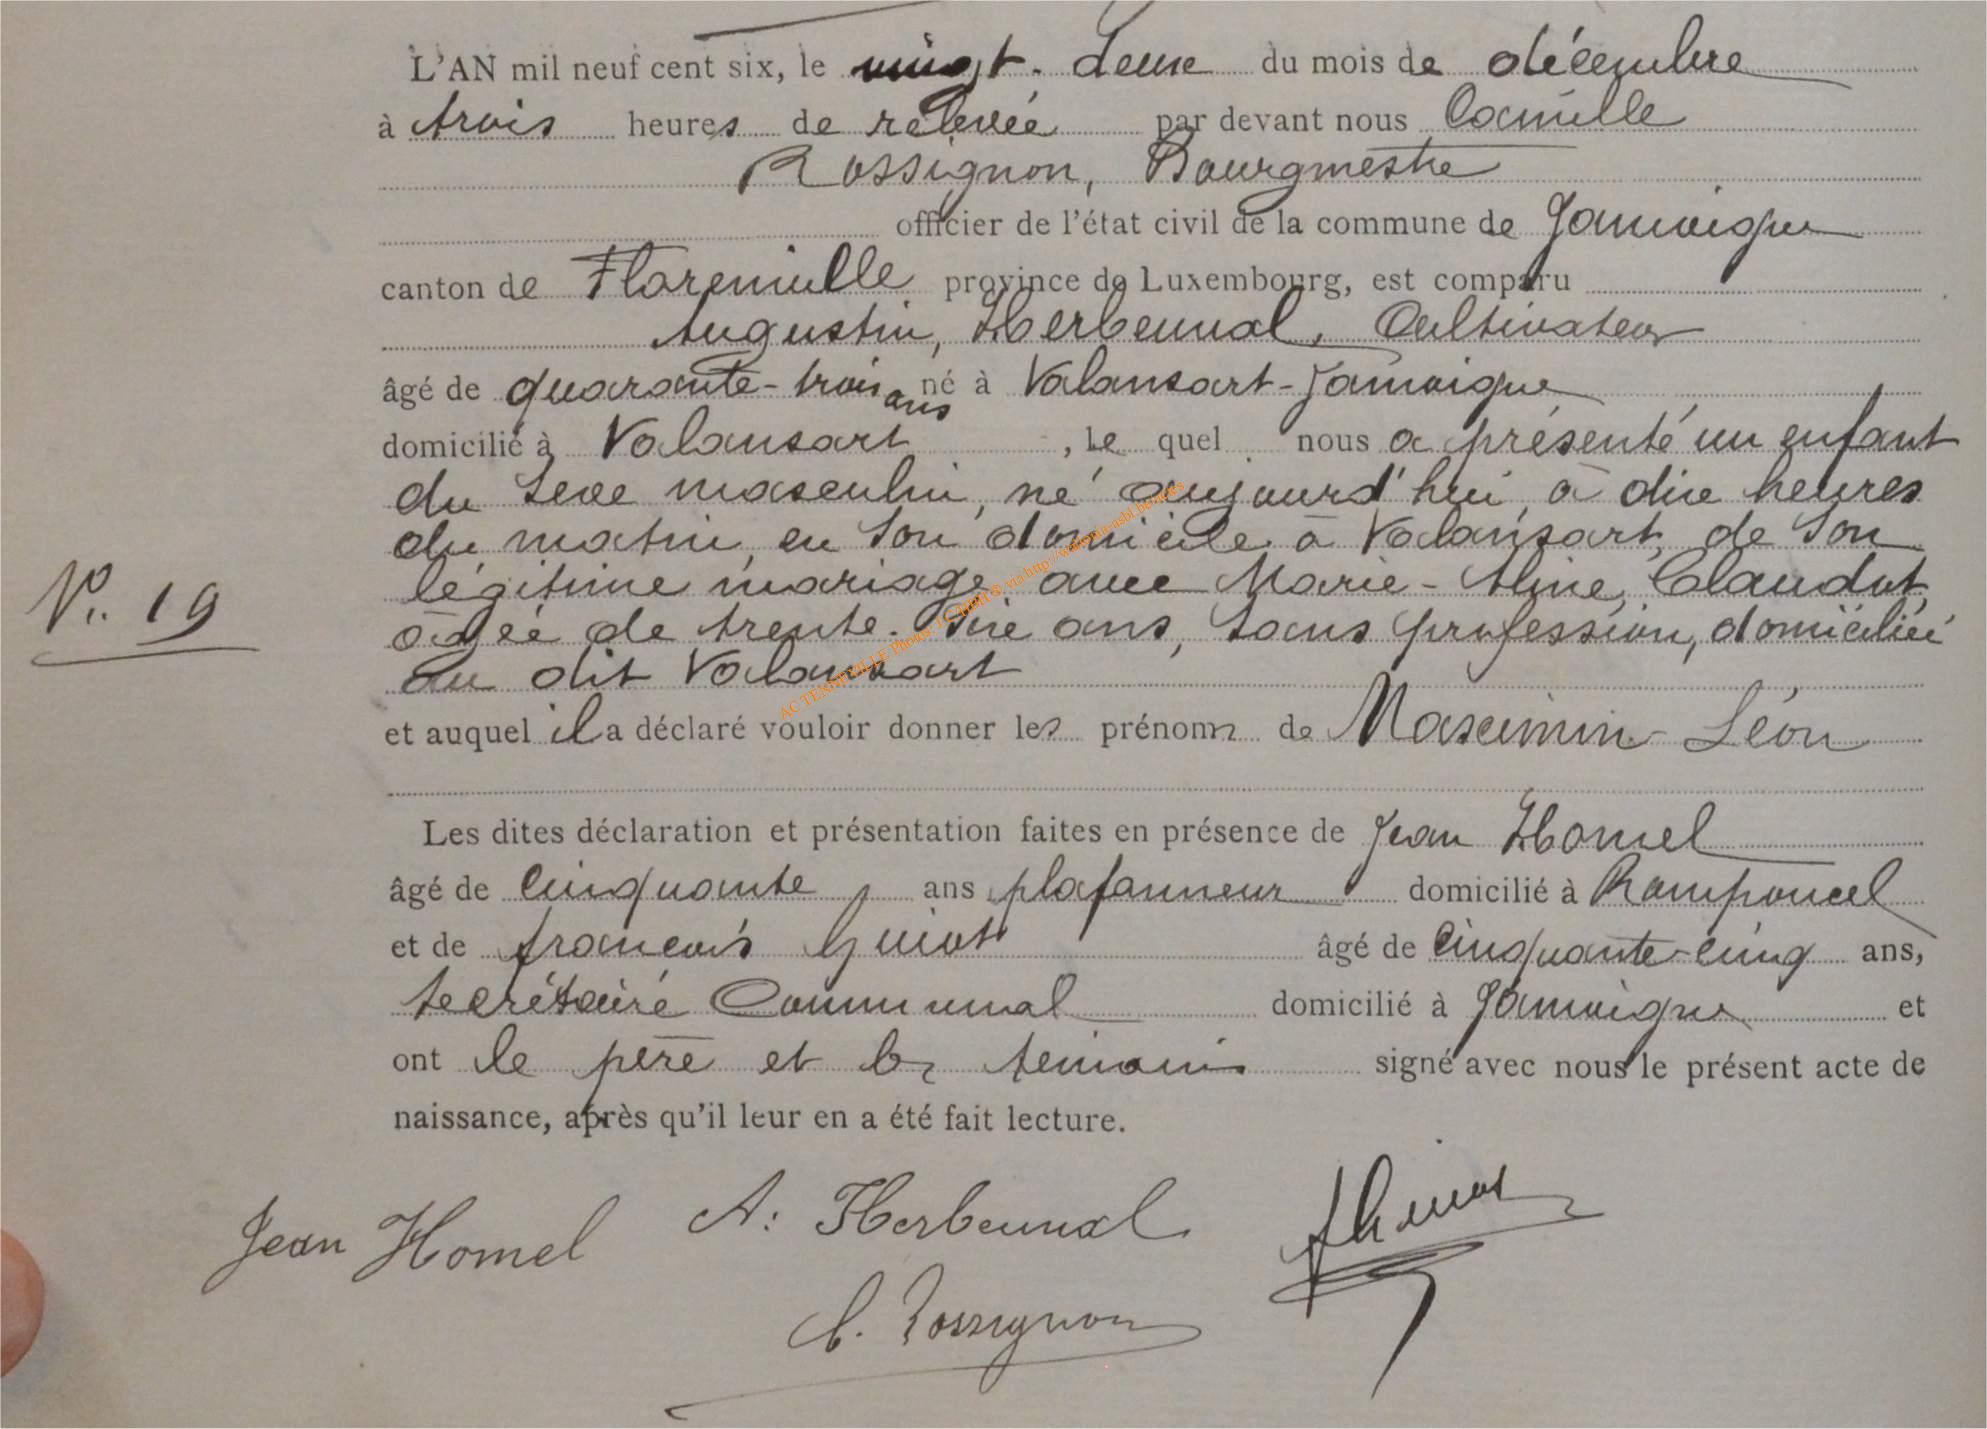 L'AN mil neuf cent six, le vingt-deux du mois de décembre
à trois heures de relevée par devant nous Camille
Rossignon, Bourgmestre
officier de l'état civil de la commune de Jamoigne
canton de Florenville province de Luxembourg, est comparu
Augustin, Herbeuval, Cultivateur
âgé de quarante-trois ans né à Valansart-Jamoigne
domicilié à Valansart, le quel nous a présenté un enfant
du sexe masculin, né aujourd'hui, à dix heures
du matin, en son domicile à Valansart, de son
légitime mariage avec Marie-Aline, Claudot,
âgée de trente-six ans, sans profession, domiciliée
au dit Valansart
N° 19
et auquel il a déclaré vouloir donner les prénoms de Maximin-Léon
Les dites déclaration et présentation faites en présence de Jean Homel
âgé de cinquante ans plafonneur domicilié à Romponcel
et de françois Guiot âgé de cinquante-cinq ans,
secrétaire Communal domicilié à Jamoigne et
ont le père et les témoins signé avec nous le présent acte de
naissance, après qu'il leur en a été fait lecture.
Jean Homel A: Herbeuval
C. Rossignon
AC TENNEVILLE Photos